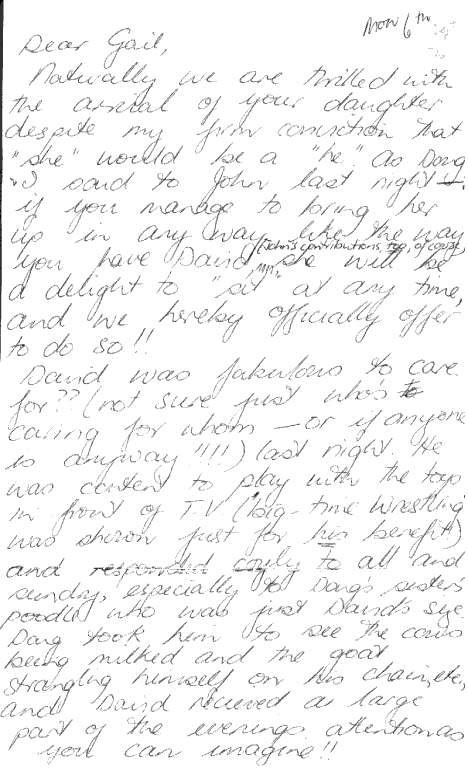 Mon 6th Sept
Dear Gail,
Naturally we are thrilled with
the arrival of your daughter
despite my firm conviction that
"she" would be a "he". As Doug
& I said to John last night —
if you manage to bring her
up in any way like the way
you have David, (John's contributions too, of course,
she will be
a delight to "sit" at any time,
and we hereby officially offer
to do so!!
David was fabulous to care
for?? (not sure just who's
caring for whom — or if anyone
is anyway!!!!) last night. He
was content to play with the toys
in front of T.V (big-time Wrestling
was shown just for his benefit)
and responded coyly to all and
sundry, especially to Doug's sister's
poodle who was just David's size.
Doug took him to see the cows
being milked and the goat
strangling himself on his chain, etc,
and David recieved a large
part of the evenings attention as
you can imagine!!